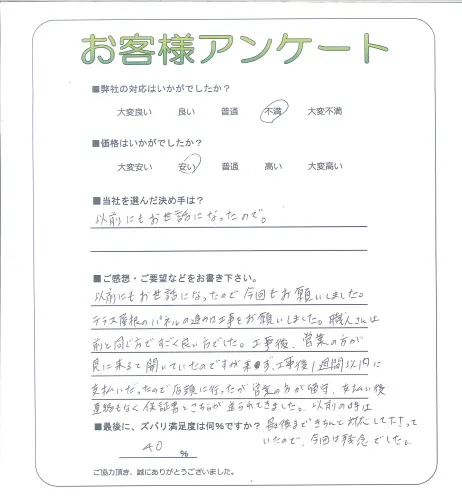 お客様アンケート
■弊社の対応はいかがでしたか？
大変良い 良い 普通 不満 大変不満
■価格はいかがでしたか？
大変安い 安い 普通 高い 大変高い
■当社を選んだ決め手は？
以前にもお世話になったので。
■ご感想・ご要望などをお書き下さい。
以前にもお世話になったので今回もお願いしました。
テラス屋根のパネルの工事をお願いしました。職人さんは
前と同じ方ですごく良い方でした。工事後、営業の方が
見に来ると聞いていたのですが来ず、工事後1週間以内に
支払いだったので店頭に行ったが営業の方が留守、支払い後
連絡もなく保証書とこちらが送られてきました。以前の時は
■最後に、ズバリ満足度は何％ですか？ 最後まできちんと対応して下さって
いたので、今回は残念でした。
40 %
ご協力頂き、誠にありがとうございました。